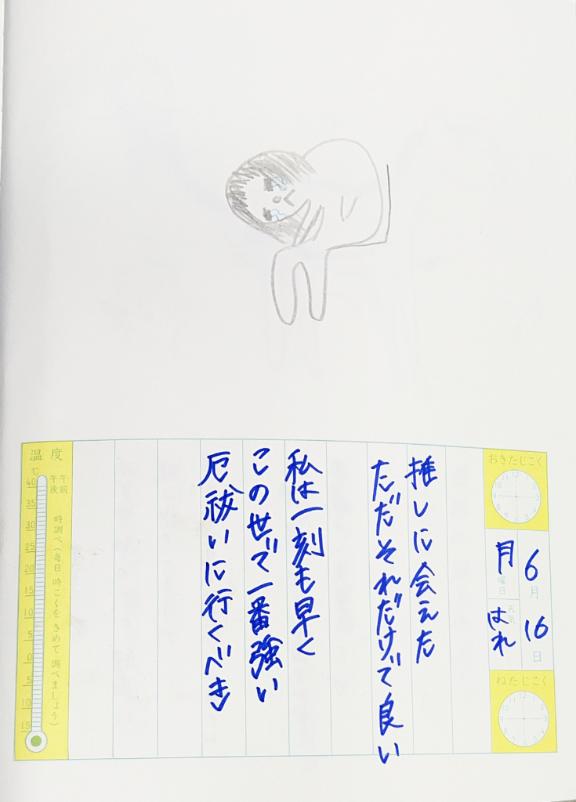 おきたじこく
6月16日
月曜日
はれ
ねたじこく
推しに会えた
ただそれだけで良い
私は一刻も早く
この世で一番強い
厄祓いに行くべき
温度
℃
午前
午後
時調べ(毎日時こくをきめて調べましょう)
40
35
30
25
20
15
10
5
0
5
10
15